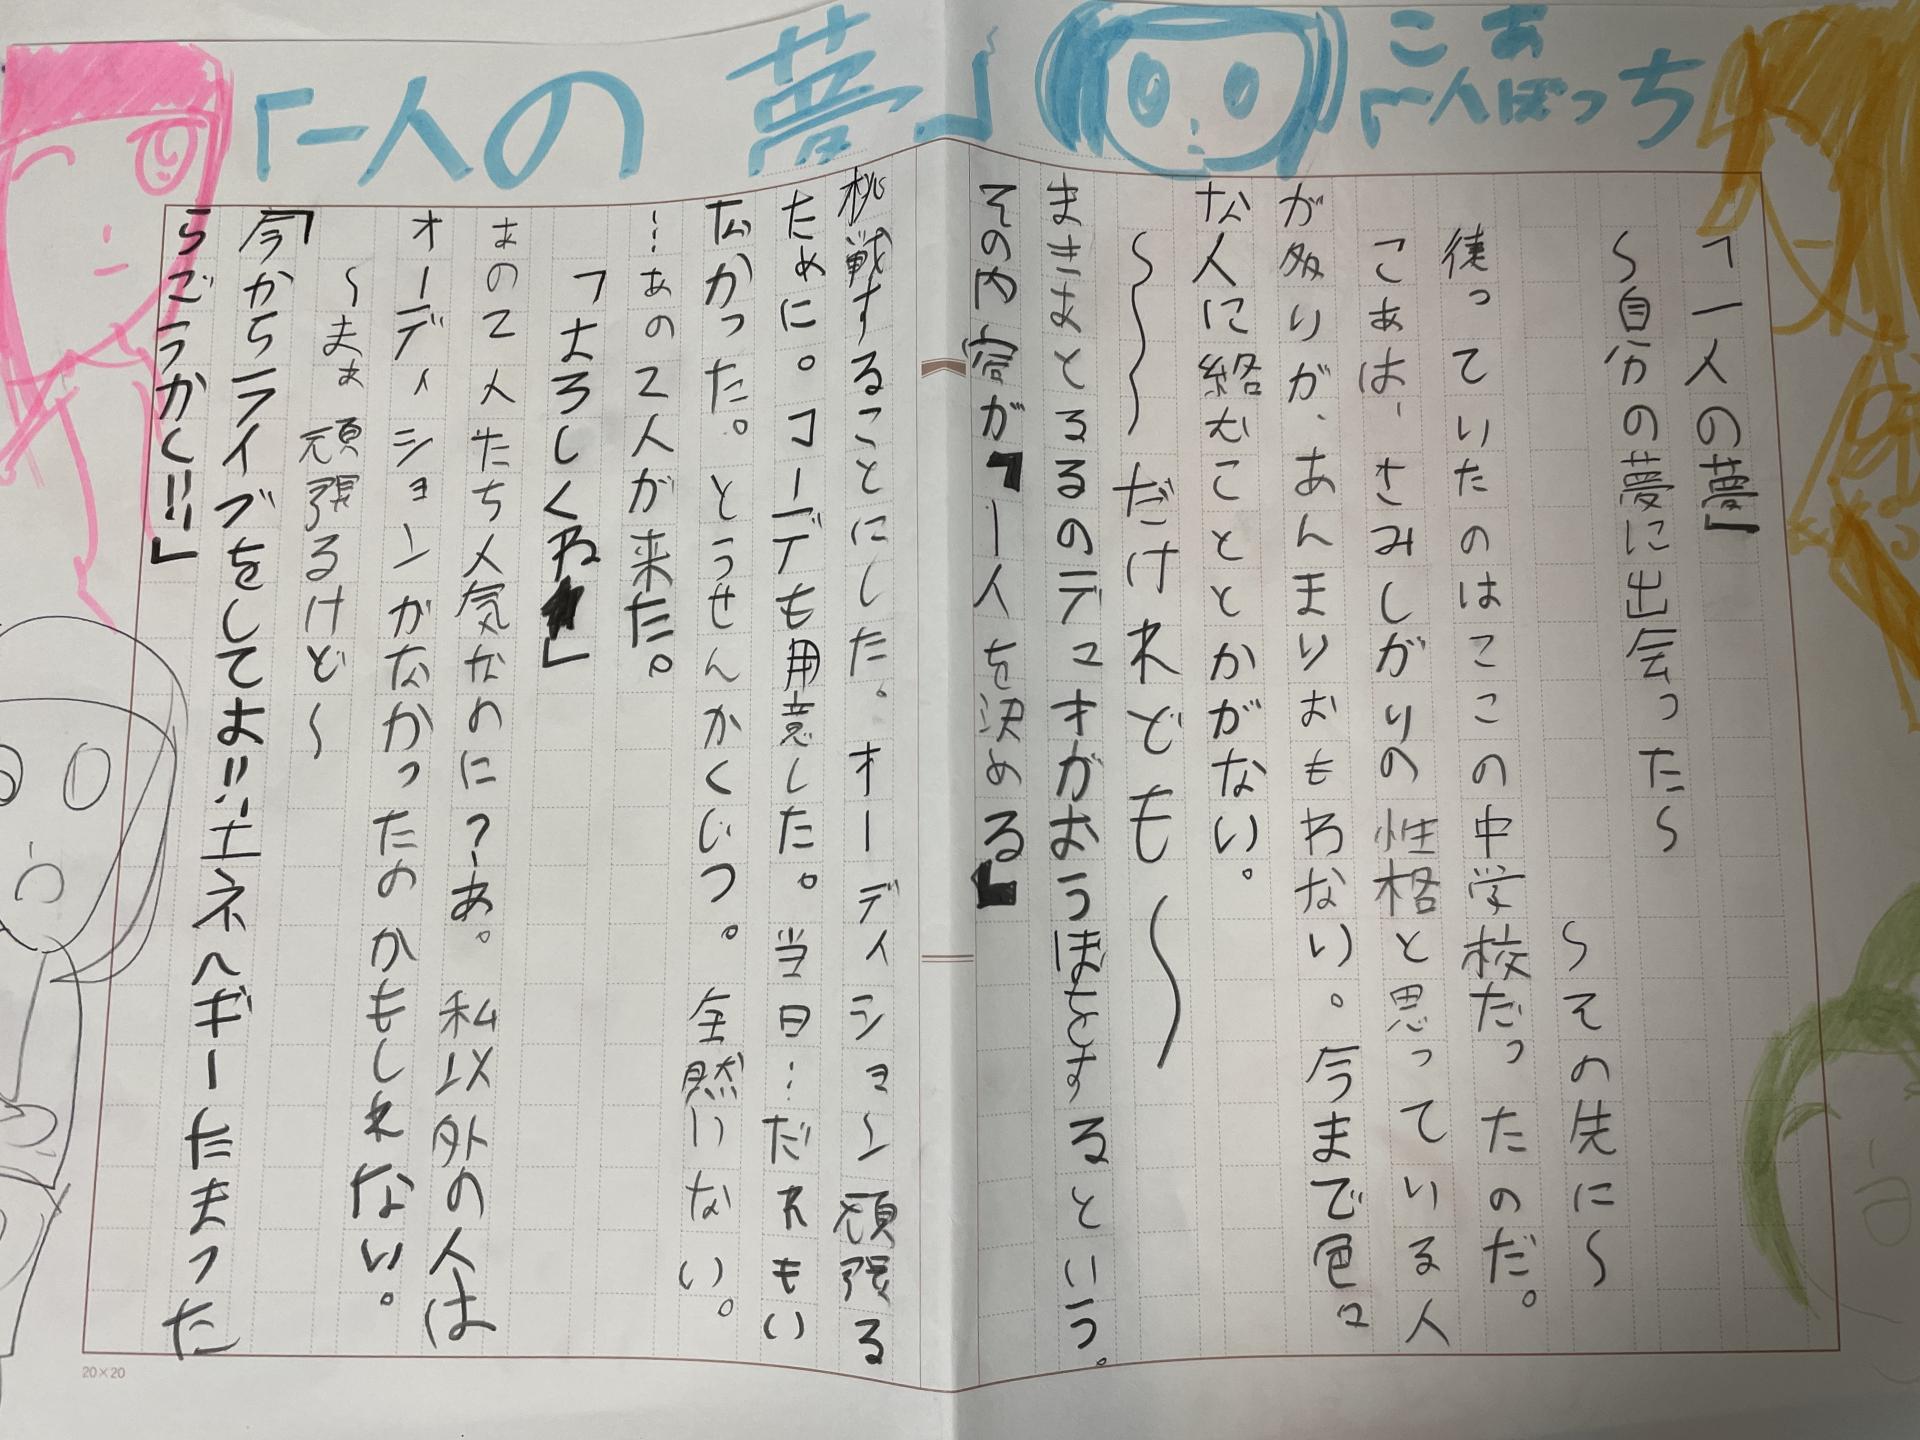 「一人の夢」
こあ
「一人ぼっち
「一人の夢」
〜自分の夢に出会ったら〜
〜その先に〜
待っていたのはここの中学校だったのだ。
こあは、さみしがりの性格と思っている人
が多りが、あんまりおもわない。今まで色々
な人に絡むこととかがない。
〜〜〜だけれども〜
まきおとるるのデコオがおうぼとするという。
その内容が「一人を決める」
挑戦することにした。オーディション頑張る
ために。コーデも用意した。当日…だれもい
なかった。とうせんかくじつ。全然いない。
…あの2人が来た。
「よろしくね」
あの2人たち人気なのに?あ。私以外の人は
オーディションがなかったのかもしれない。
〜まぁ頑張るけど〜
「今からライブをしてよ!!エネヘギーたまった
らごうかく!!」
20×20